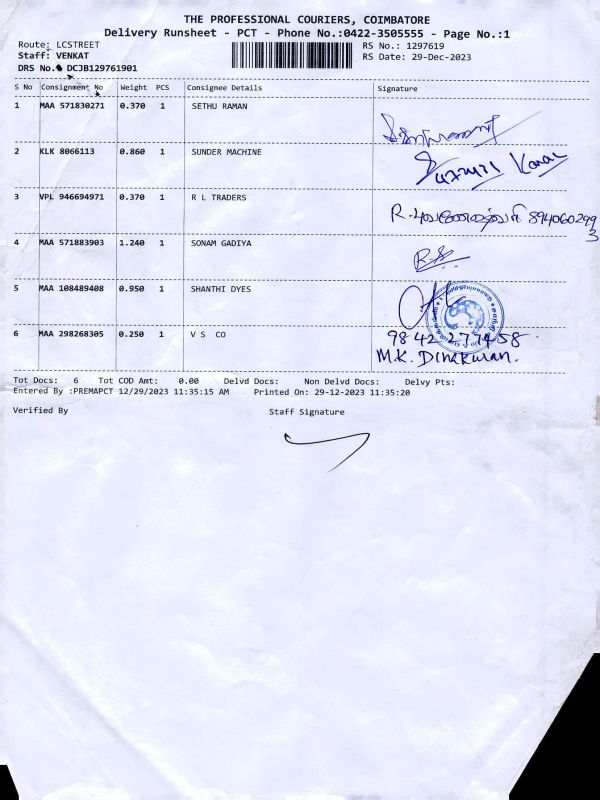 THE PROFESSIONAL COURIERS, COIMBATORE
Delivery Runsheet - PCT - Phone No.:0422-3505555 - Page No.:1
Route: LCSTREET
RS No.: 1297619
Staff: VENKAT
RS Date: 29-Dec-2023
DRS No. DCJB129761901
S No Consignment No Weight PCS Consignee Details Signature
1 MAA 571830271 0.370 1 SETHU RAMAN
2 KLK 8066113 0.860 1 SUNDER MACHINE
3 VPL 946694971 0.370 1 R L TRADERS
R. 8940602993
4 MAA 571883903 1.240 1 SONAM GADIYA
R.S.
5 MAA 108489408 0.950 1 SHANTHI DYES
6 MAA 298268305 0.250 1 V S CO
98 42 277458
M.K. Dinakaran.
Tot Docs: 6 Tot COD Amt: 0.00 Delvd Docs: Non Delvd Docs: Delvy Pts:
Entered By :PREMAPCT 12/29/2023 11:35:15 AM Printed On: 29-12-2023 11:35:20
Verified By Staff Signature